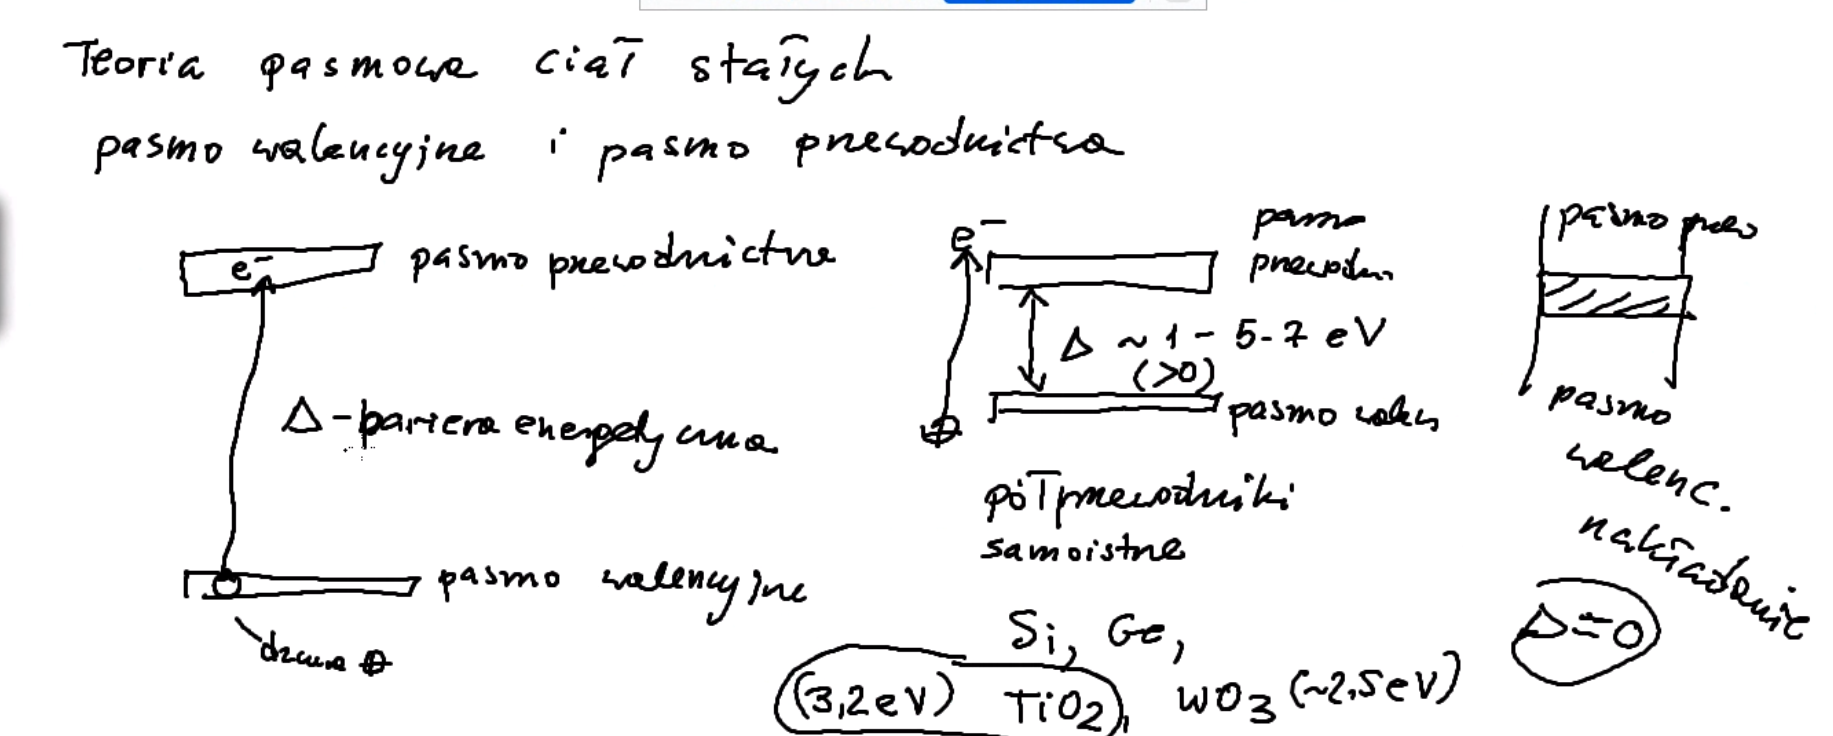 Teoria pasmowa ciał stałych
pasmo walencyjne i pasmo przewodnictwa
e⁻
pasmo przewodnictwa
Δ - bariera energetyczna
pasmo walencyjne
dziura ⊕
e⁻
pasmo
przewodn.
Δ ~ 1 - 5-7 eV
(>0)
⊕
pasmo walen
półprzewodniki
samoistne
Si, Ge,
(3,2 eV) TiO2, WO3 (~2,5 eV)
pasmo przew
pasmo
walenc.
nakładanie
Δ=0